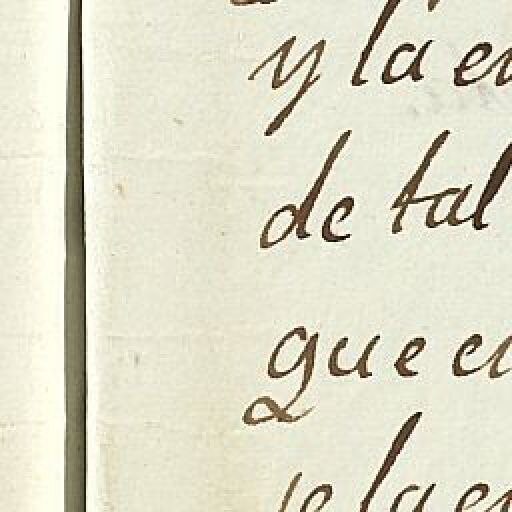 y la en
de tal
que en
se la en